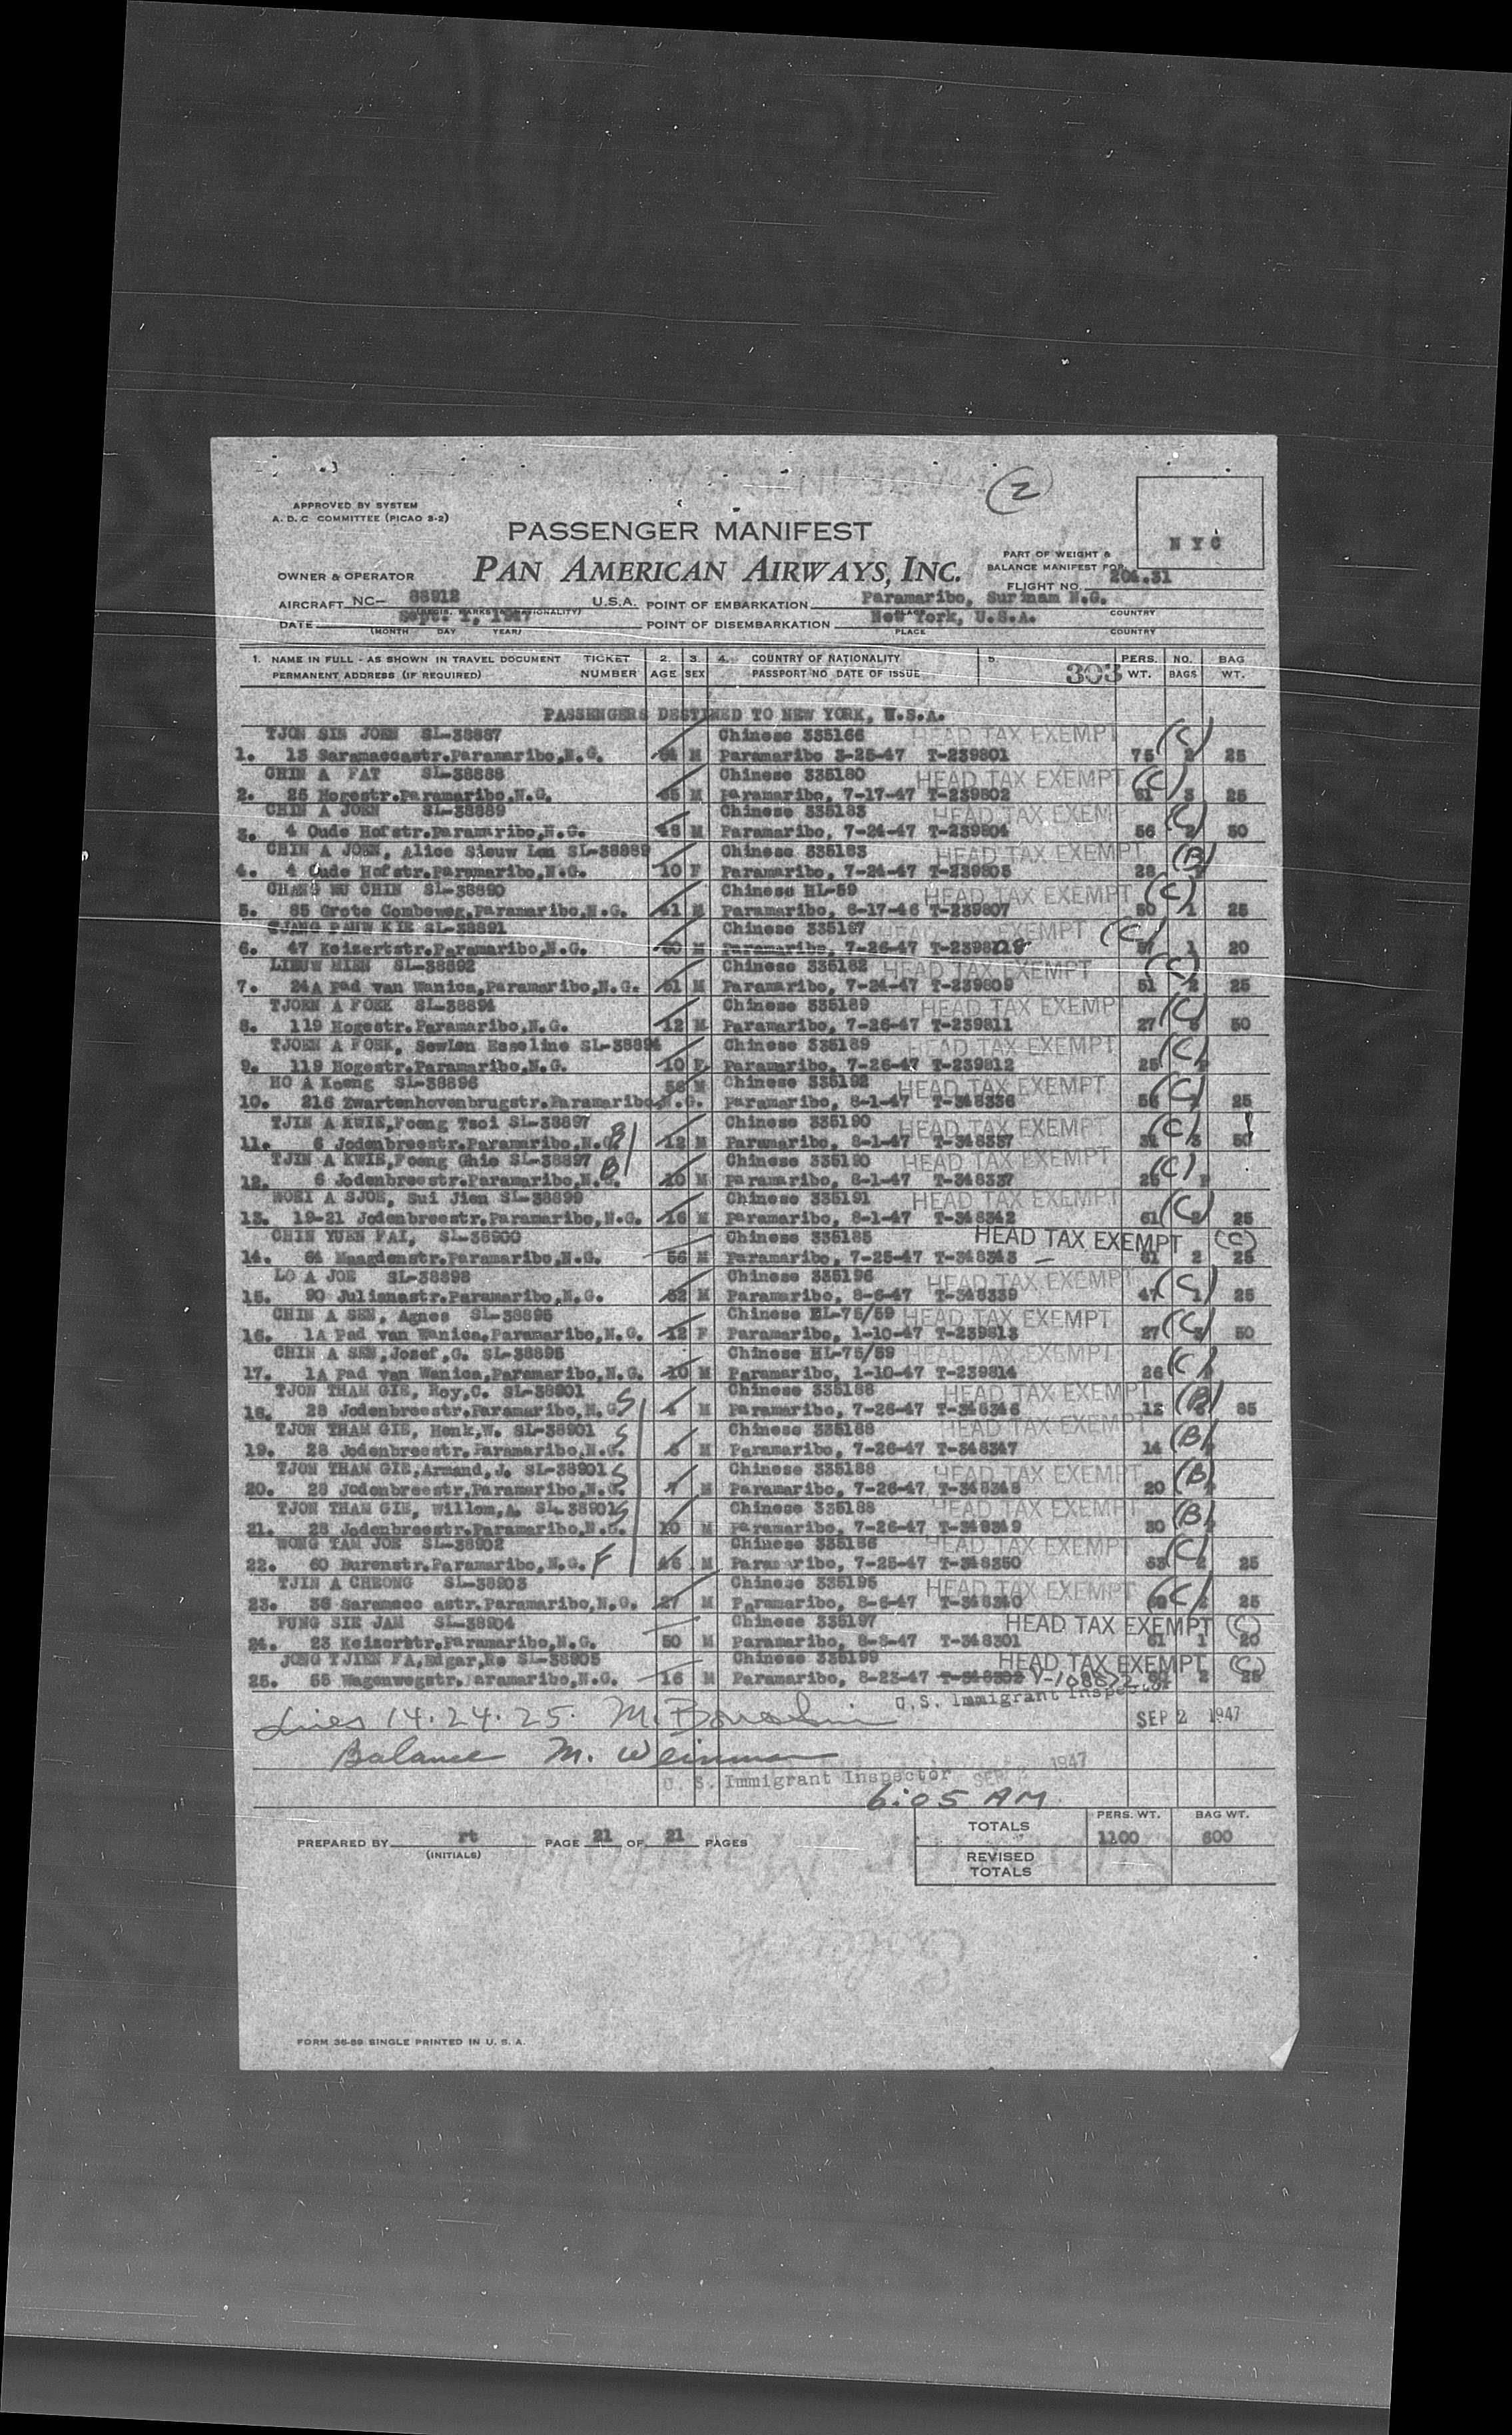 2
APPROVED BY SYSTEM
A. D. C COMMITTEE (PICAO 3-2)
PASSENGER MANIFEST
N Y C
PART OF WEIGHT &
BALANCE MANIFEST FOR
OWNER & OPERATOR
PAN AMERICAN AIRWAYS, INC.
FLIGHT NO. 204.31
AIRCRAFT NC- 88912 U.S.A. POINT OF EMBARKATION Paramaribo, Surinam N.G.
DATE Sept. 1, 1947 POINT OF DISEMBARKATION New York, U.S.A.
(MONTH DAY YEAR) PLACE COUNTRY
1. NAME IN FULL - AS SHOWN IN TRAVEL DOCUMENT TICKET 2. 3. 4. COUNTRY OF NATIONALITY 5. PERS. NO. BAG
PERMANENT ADDRESS (IF REQUIRED) NUMBER AGE SEX PASSPORT NO DATE OF ISSUE 303 WT. BAGS WT.
PASSENGERS DESTINED TO NEW YORK, U.S.A.
TJON SIN JOEN SL-38887 Chinese 335166 HEAD TAX EXEMPT (C)
1. 13 Saramaccastr.Paramaribo,N.G. M Paramaribo 3-25-47 T-239801 75 2 25
CHIN A FAT SL-38888 Chinese 335180 HEAD TAX EXEMPT (C)
2. 25 Hogestr.Paramaribo,N.G. M Paramaribo, 7-17-47 T-239802 61 3 25
CHIN A JOEN SL-38889 Chinese 335183 HEAD TAX EXEM (C)
3. 4 Oude Hofstr.Paramaribo,N.G. 48 M Paramaribo, 7-24-47 T-239804 56 2 50
CHIN A JOEN, Alice Sieuw Lan SL-38889 Chinese 335183 HEAD TAX EXEMPT (B)
4. 4 Oude Hofstr.Paramaribo,N.G. 10 F Paramaribo, 7-24-47 T-239805 28
CHANG WU CHIN SL-38890 Chinese HL-59 HEAD TAX EXEMPT (C)
5. 85 Grote Combeweg,Paramaribo,N.G. 41 M Paramaribo, 6-17-46 T-239807 50 1 25
SL-38891 Chinese 335167 HEAD TAX EXEMPT (C)
6. 47 Keizertstr.Paramaribo,N.G. M Paramaribo, 7-26-47 57 1 20
LIEUW MIEN SL-38892 Chinese 335182 HEAD TAX EXEMPT (C)
7. 24A Pad van Wanica,Paramaribo,N.G. 51 M Paramaribo, 7-24-47 T-239809 51 2 25
TJOEN A FOEK SL-38894 Chinese 335189 HEAD TAX EXEMPT (C)
8. 119 Hogestr.Paramaribo,N.G. 12 M Paramaribo, 7-26-47 T-239811 27 50
TJOEN A FOEK, SewLan Esseline SL-38894 Chinese 335189 HEAD TAX EXEMPT (C)
9. 119 Hogestr.Paramaribo,N.G. 10 F Paramaribo, 7-26-47 T-239812 25
HO A Koeng SL-38896 56 M Chinese 335192 HEAD TAX EXEMPT (C)
10. 216 Zwartenhovenbrugstr.Paramaribo,N.G. Paramaribo, 8-1-47 T-348336 55 25
TJIN A KWIE,Foeng Tsoi SL-38897 B Chinese 335190 HEAD TAX EXEMPT (C)
11. 6 Jodenbreestr.Paramaribo,N.G. 12 M Paramaribo, 8-1-47 T-348337 3 50
TJIN A KWIE,Foeng Ghie SL-38897 B Chinese 335190 HEAD TAX EXEMPT (C)
12. 6 Jodenbreestr.Paramaribo,N.G. 10 M Paramaribo, 8-1-47 T-348337 25
A SJOE, Sui Jien SL-38899 Chinese 335191 HEAD TAX EXEMPT
13. 19-21 Jodenbreestr.Paramaribo,N.G. 16 M Paramaribo, 8-1-47 T-348342 61 (C) 25
CHIN YUEN FAI, SL-38900 Chinese 335185 HEAD TAX EXEMPT (C)
14. 64 Maagdenstr.Paramaribo,N.G. 56 M Paramaribo, 7-25-47 T-348343 61 2 25
LO A JOE SL-38898 Chinese 335196 HEAD TAX EXEMPT (C)
15. 90 Julianastr.Paramaribo,N.G. 52 M Paramaribo, 8-6-47 T-348339 47 1 25
CHIN A SEN, Agnes SL-38895 Chinese HL-75/59 HEAD TAX EXEMPT (C)
16. 1A Pad van Wanica,Paramaribo,N.G. 12 F Paramaribo, 1-10-47 T-239813 27 50
CHIN A SEN,Josef,G. SL-38895 Chinese HL-75/59 HEAD TAX EXEMPT (C)
17. 1A Pad van Wanica,Paramaribo,N.G. 10 M Paramaribo, 1-10-47 T-239814 26
TJON THAM GIE, Roy,C. SL-38901 S Chinese 335188 HEAD TAX EXEMPT (B)
18. 28 Jodenbreestr.Paramaribo,N.G. M Paramaribo, 7-26-47 T-348346 12 85
TJON THAM GIE, Henk,W. SL-38901 S Chinese 335188 HEAD TAX EXEMPT (B)
19. 28 Jodenbreestr.Paramaribo,N.G. M Paramaribo, 7-26-47 T-348347 14
TJON THAM GIE,Armand,J. SL-38901 S Chinese 335188 HEAD TAX EXEMPT (B)
20. 28 Jodenbreestr.Paramaribo,N.G. 7 M Paramaribo, 7-26-47 T-348348 20
TJON THAM GIE, Willem,A. SL-38901 S Chinese 335188 HEAD TAX EXEMPT (B)
21. 28 Jodenbreestr.Paramaribo,N.G. 10 M Paramaribo, 7-26-47 T-348349 30
WONG TAM JOE SL-38902 Chinese 335186 HEAD TAX EXEMPT (C)
22. 60 Burenstr.Paramaribo,N.G. F M Paramaribo, 7-25-47 T-348350 2 25
TJIN A CHEONG SL-38903 Chinese 335195 HEAD TAX EXEMPT (C)
23. 36 Saramacc astr.Paramaribo,N.G. 27 M Paramaribo, 8-6-47 T-348340 2 25
FUNG SIE JAM SL-38904 Chinese 335197 HEAD TAX EXEMPT (C)
24. 23 Keizerstr.Paramaribo,N.G. 50 M Paramaribo, 8-8-47 T-348301 61 1 20
JONG TJIEN FA,Edgar,Re SL-38905 Chinese 335199 HEAD TAX EXEMPT (C)
25. 55 Wagenwegstr.Paramaribo,N.G. 16 M Paramaribo, 8-23-47 T-348302 2 25
U.S. Immigrant Inspector
Lines 14.24.25. SEP 2 1947
Balance M. Weinman
U. S. Immigrant Inspector SEP 2 1947
6:05 AM
TOTALS PERS. WT. BAG WT.
PREPARED BY rt PAGE 21 OF 21 PAGES 1100 600
(INITIALS)
REVISED
TOTALS
FORM 36-89 SINGLE PRINTED IN U. S. A.